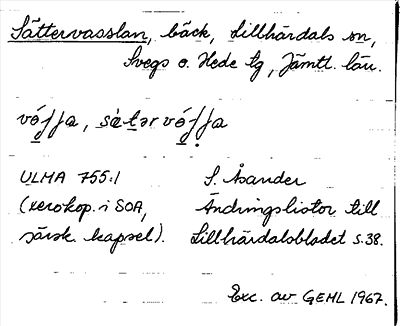 Sättervasslan, bäck, Lillhärdals sn,
Svegs o. Hede tg, Jämtl. län.
vó̱ʃʃa, sä̀ṯər vó̱ʃʃa
ULMA 755:1 S. Åsander
(xerokop. i SOA, Ändringslistor till
särsk. kapsel). Lillhärdalsbladet s. 38.
Exc. av GEHL 1967.